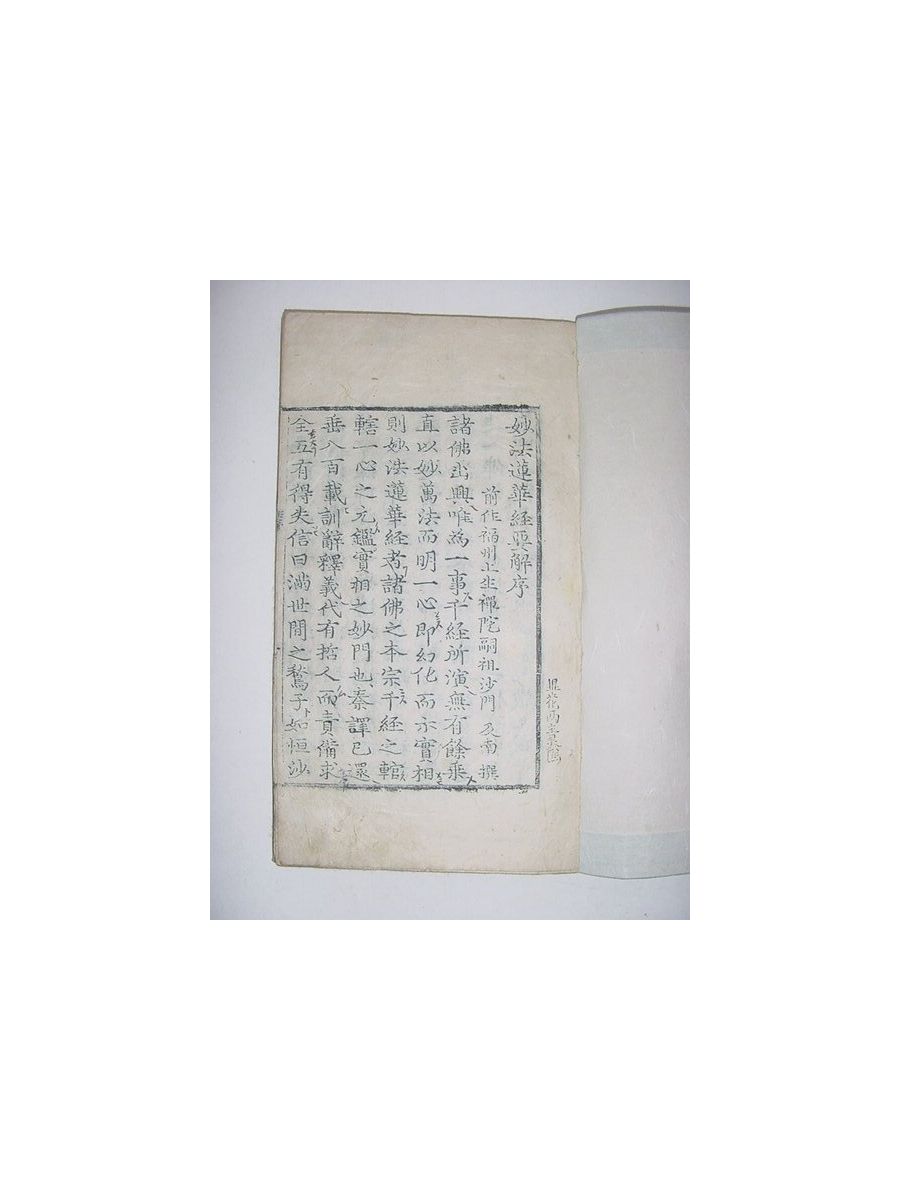 妙法蓮華経要解序
前住福州上生禪院嗣祖沙門及南撰
諸佛出興唯為一事千経所演無有餘乗
直以妙萬法而明一心即幻化而示實相
則妙法蓮華経者諸佛之本宗千経之輨
轄一心之元鑑實相之妙門也秦譯已還
垂八百載訓辭釋義代有哲人而責備求
全互有得失信曰満世間之鶖子如恒沙